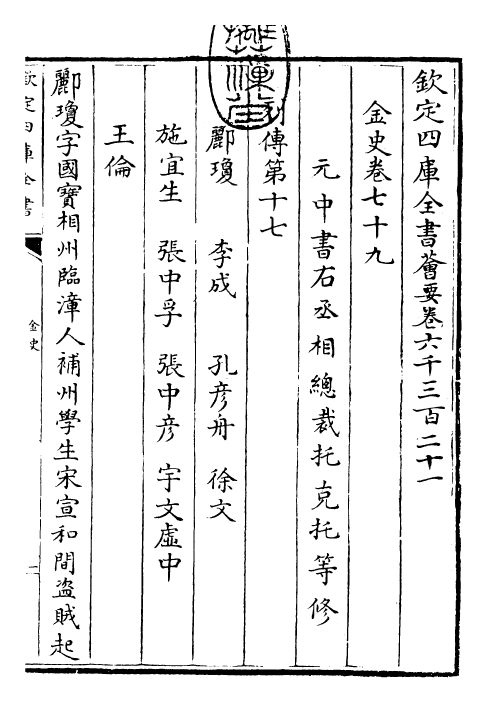 欽定四庫全書薈要卷六千三百二十一
金史卷七十九
元中書右丞相總裁托克托等修
列傳第十七
酈瓊 李成 孔彦舟 徐文
施宜生 張中孚 張中彦 宇文虛中
王倫
酈瓊字國寶相州臨漳人補州學生宋宣和間盜賊起
欽定四庫全書
金史
一